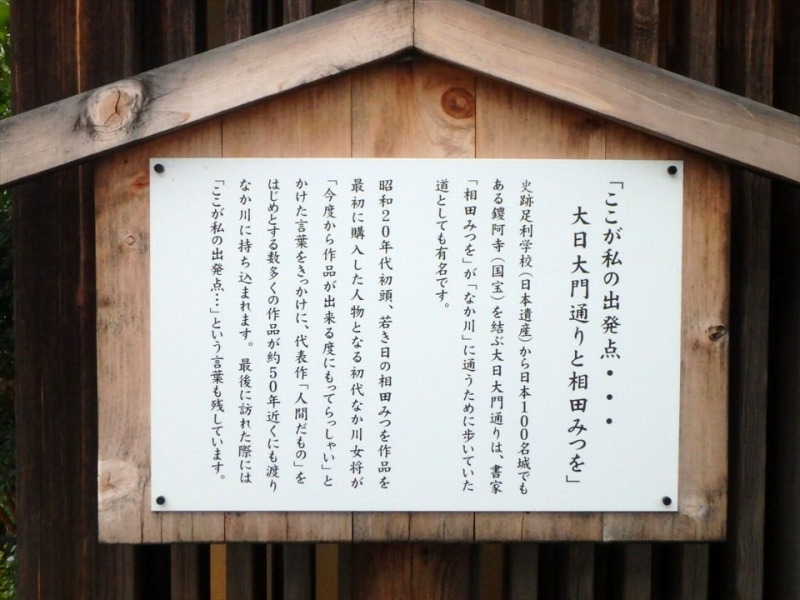 「ここが私の出発点・・・
大日大門通りと相田みつを」
史跡足利学校(日本遺産)から日本100名城でも
ある鑁阿寺(国宝)を結ぶ大日大門通りは、書家
「相田みつを」が「なか川」に通うために歩いていた
道としても有名です。
昭和20年代初頭、若き日の相田みつを作品を
最初に購入した人物となる初代なか川女将が
「今度から作品が出来る度にもってらっしゃい」と
かけた言葉をきっかけに、代表作「人間だもの」を
はじめとする数多くの作品が約50年近くにも渡り
なか川に持ち込まれます。最後に訪れた際には
「ここが私の出発点…」という言葉も残しています。